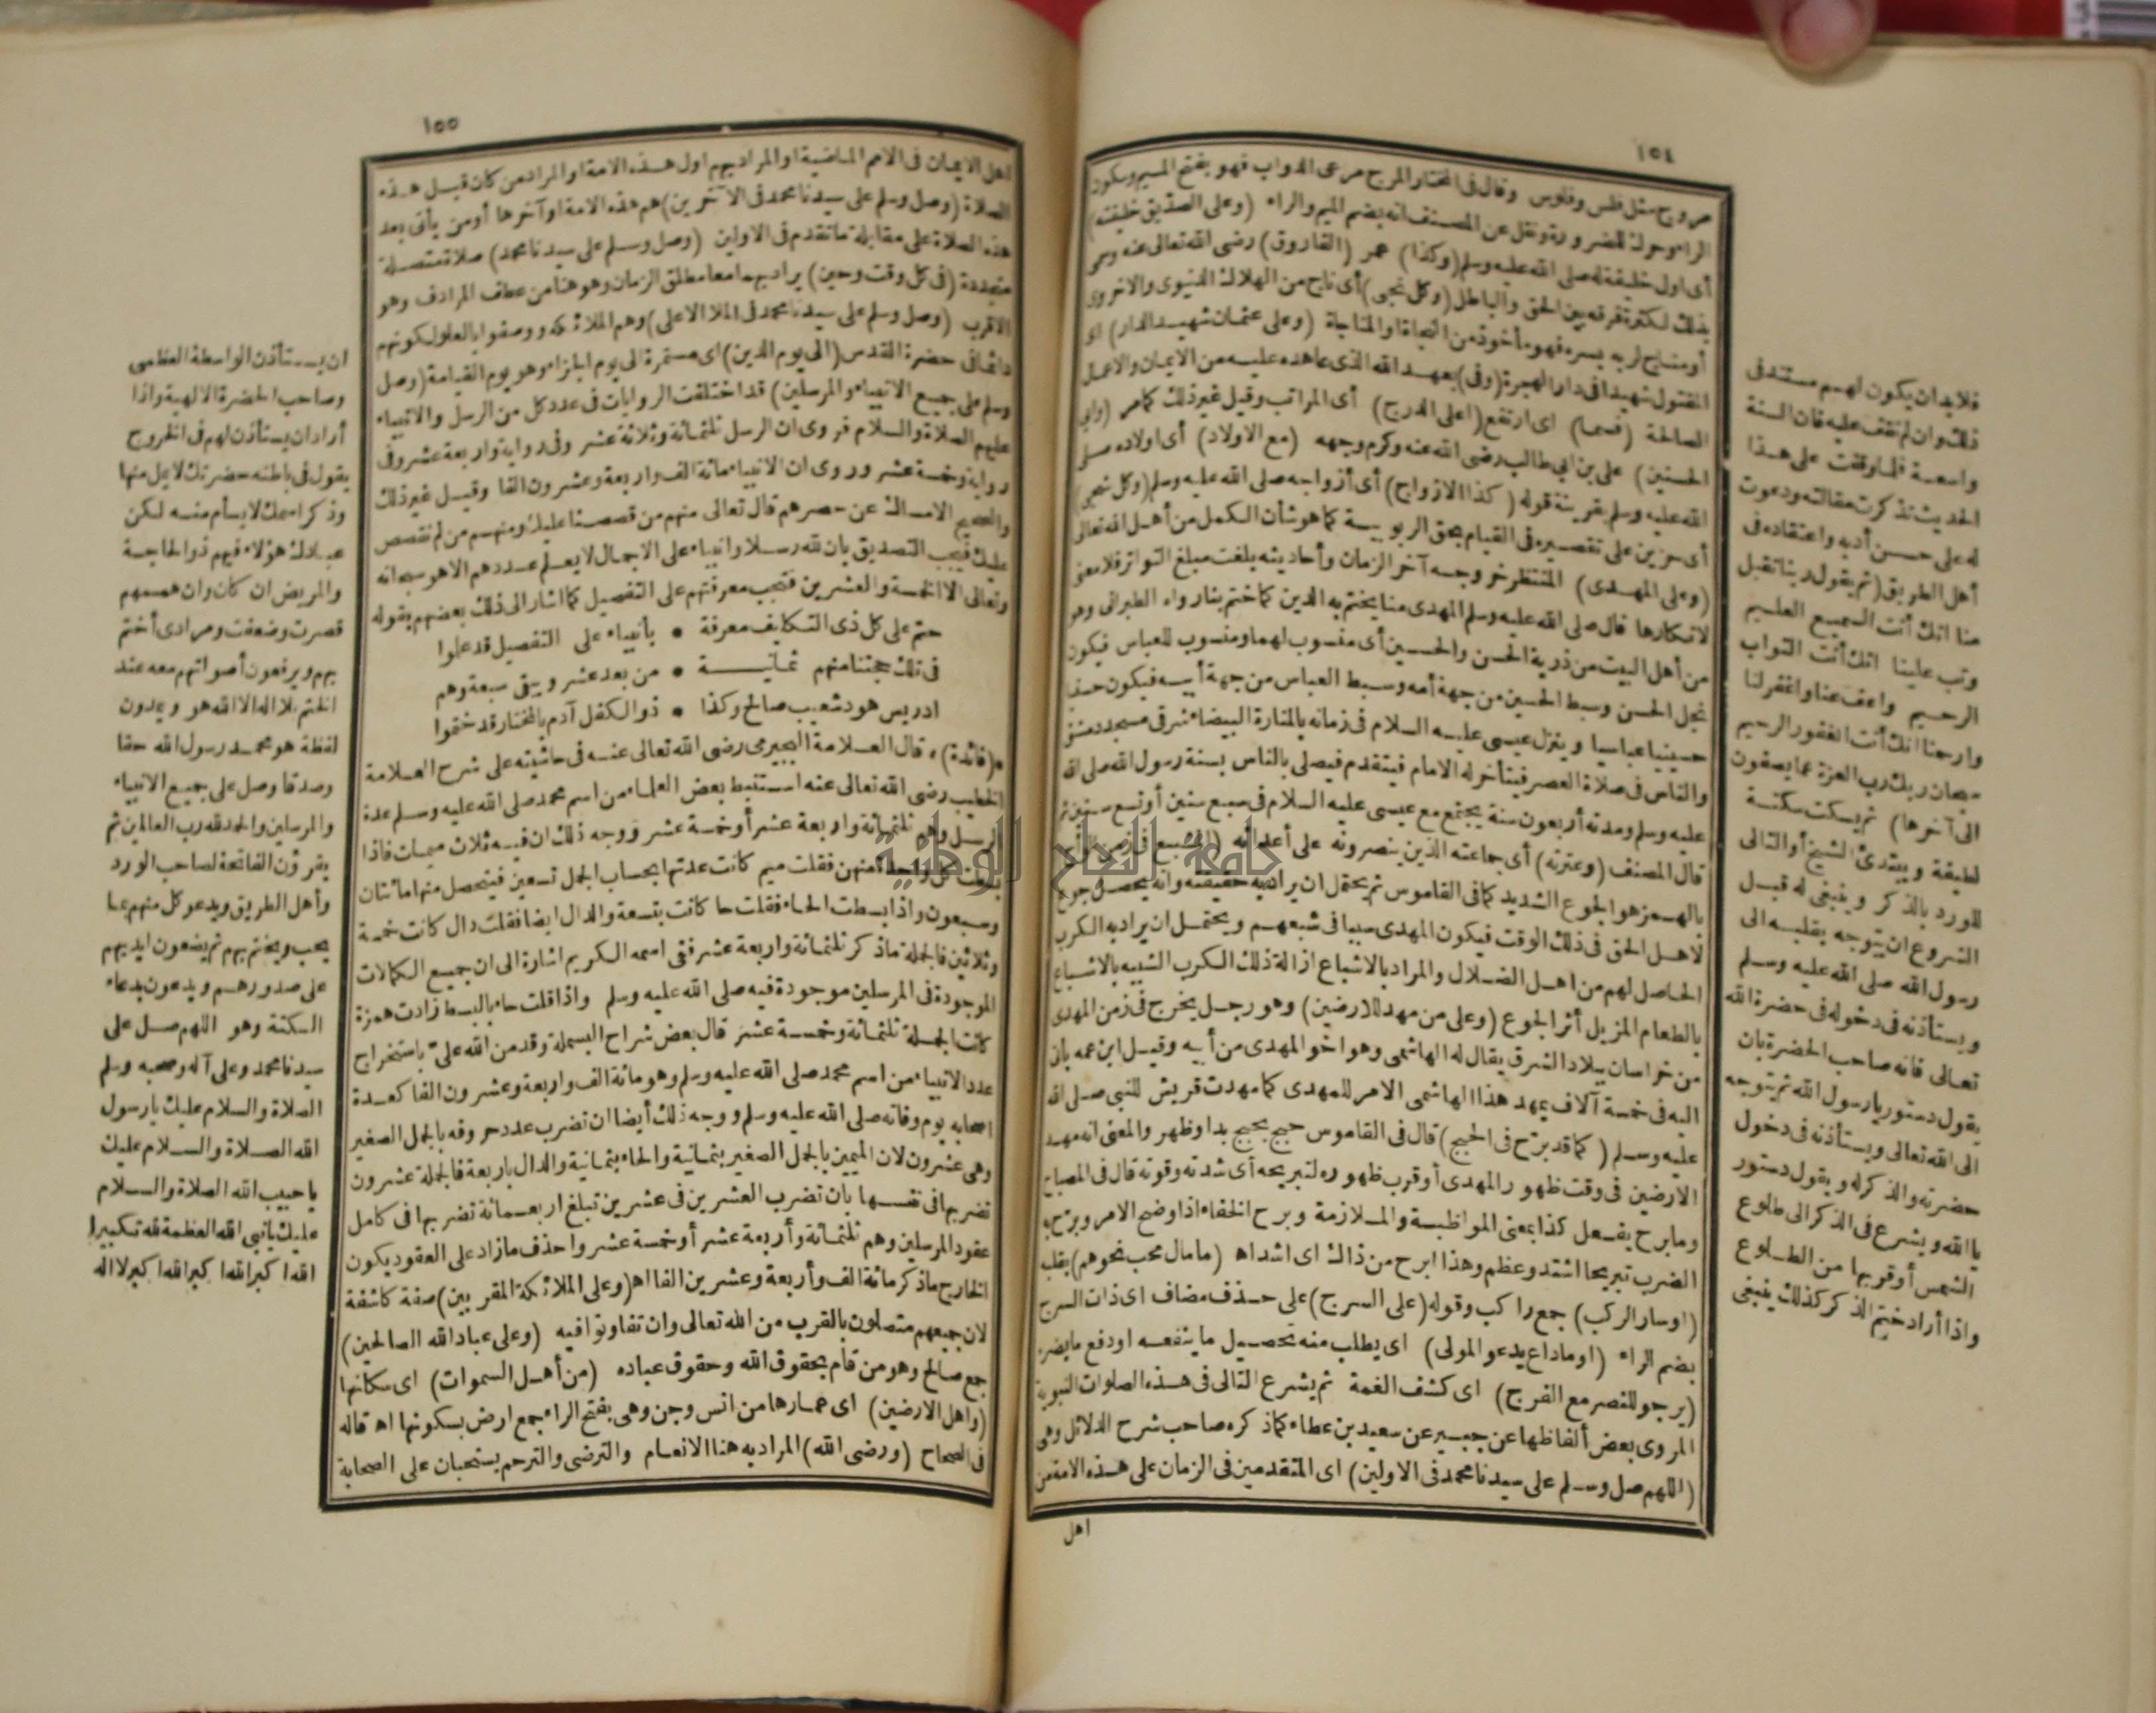 ١٥٤
مروج مثل فلس وفلوس وقال فى المختار المرج مرعى الدواب فهو بفتح الميم وسكون
الراء وحوله للضرورة ونقل عن المصنف انه بضم الميم والراء (وعلى الصديق خليفته)
أى اول خليفة له صلى الله عليه وسلم (وكذا) عمر (الفاروق) رضى الله تعالى عنه وسمى
بذلك لكثرة فرقه بين الحق والباطل (وكل نجى) أى ناج من الهلاك الدنيوى والاخروى
أو مناج لربه بسره فهو مأخوذ من النجاة او المناجاة (وعلى عثمان شهيد الدار) اى
المقتول شهيدا فى دار الهجرة (وفى) بعهد الله الذى عاهده عليه من الايمان والاعمال
الصالحة (فسما) اى ارتفع (اعلى الدرج) أى المراتب وقيل غير ذلك كما مر (وابى
الحسنين) على بن ابى طالب رضى الله عنه وكرم وجهه (مع الاولاد) أى اولاده صلى
الله عليه وسلم بقرينة قوله (كذا الازواج) أى أزواجه صلى الله عليه وسلم (وكل شجى)
أى حزين على تقصيره فى القيام بحق الربوبية كما هو شأن الكمل من أهل الله تعالى
(وعلى المهدى) المنتظر خروجه آخر الزمان وأحاديثه بلغت مبلغ التواتر فلا معنى
لانكارها قال صلى الله عليه وسلم المهدى منا يختم به الدين كما ختم بنا رواه الطبرانى وهو
من أهل البيت من ذرية الحسن والحسين أى منسوب لهما ومنسوب للعباس فيكون
نجل الحسن وسبط الحسين من جهة أمه وسبط العباس من جهة أبيه فيكون حسنيا
حسينيا عباسيا وينزل عيسى عليه السلام فى زمانه بالمنارة البيضاء شرقى مسجد دمشق
والناس فى صلاة العصر فيتأخر له الامام فيتقدم فيصلى بالناس بسنة رسول الله صلى الله
عليه وسلم ومدته أربعون سنة يجتمع مع عيسى عليه السلام فى سبع سنين أو تسع سنين ثم
قال المصنف (وعترته) أى جماعته الذين ينصرونه على أعدائه
بالهمز هو الجوع الشديد كما فى القاموس ثم يحتمل ان يراد به حقيقته وانه يحصل جوع
لاهل الحق فى ذلك الوقت فيكون المهدى سببا فى شبعهم ويحتمل ان يراد به الكرب
الحاصل لهم من اهل الضلال والمراد بالاشباع ازالة ذلك الكرب الشبيه بالاشباع
بالطعام المزيل أثر الجوع (وعلى من مهد للارضين) وهو رجل يخرج فى زمن المهدى
من خراسان ببلاد الشرق يقال له الهاشمى وهو اخو المهدى من أبيه وقيل ابن عمه يأتى
اليه فى خمسة آلاف يمهد هذا الهاشمى الامر للمهدى كما مهدت قريش للنبى صلى الله
عليه وسلم (كما قد برّح فى الحجج) قال فى القاموس حجج بدا وظهر والمعنى انه مهد
الارضين فى وقت ظهور المهدى أو قرب ظهوره لتبريحه أى شدته وقوته قال فى المصباح
وما برح يفعل كذا بمعنى المواظبة والملازمة وبرح الخفاء اذا وضح الامر وبرّح به
الضرب تبريحا اشتد وعظم وهذا ابرح من ذاك اى اشد اه (ما مال محب نحوهم) بقلبه
(اوسار الركب) جمع راكب وقوله (على السرج) على حذف مضاف اى ذات السرج
بضم الراء (او ما داع يدعو المولى) اى يطلب منه تحصيل ما ينفعه او دفع ما يضره
(يرجو للنصر مع الفرج) اى كشف الغمة ثم يشرع التالى فى هذه الصلوات النبوية
المروى بعض ألفاظها عن جبير عن سعيد بن عطاء كما ذكره صاحب شرح الدلائل وهى
(اللهم صل وسلم على سيدنا محمد فى الاولين) اى المتقدمين فى الزمان على هذه الامة من
اهل
فلا بد ان يكون لهم مستند فى
ذلك وان لم نقف عليه فان السنة
واسعة فلما وقفت على هذا
الحديث تذكرت مقالته ودعوت
له على حسن أدبه واعتقاده فى
أهل الطريق (ثم يقول ربنا تقبل
منا انك أنت السميع العليم
وتب علينا انك أنت التواب
الرحيم واعف عنا واغفر لنا
وارحمنا انك أنت الغفور الرحيم
سبحان ربك رب العزة عما يصفون
الى آخرها) ثم يسكت سكتة
لطيفة ويبتدئ الشيخ أو التالى
للورد بالذكر وينبغى له قبل
الشروع ان يتوجه بقلبه الى
رسول الله صلى الله عليه وسلم
ويستأذنه فى دخوله فى حضرة الله
تعالى فانه صاحب الحضرة بان
يقول دستور يا رسول الله ثم يتوجه
الى الله تعالى ويستأذنه فى دخول
حضرته والذكر له ويقول دستور
يا الله ويشرع فى الذكر الى طلوع
الشمس أو قربها من الطلوع
واذا أراد ختم الذكر كذلك ينبغى
١٥٥
اهل الايمان فى الامم الماضية او المراد بهم اول هذه الامة او المراد من كان قبل هذه
الصلاة (وصل وسلم على سيدنا محمد فى الآخرين) هم هذه الامة او آخرها أو من يأتى بعد
هذه الصلاة على مقابلة ما تقدم فى الاولين (وصل وسلم على سيدنا محمد) صلاة متصلة
متجددة (فى كل وقت وحين) يراد بهما معا مطلق الزمان وهو هنا من عطف المرادف وهو
الاقرب (وصل وسلم على سيدنا محمد فى الملا الاعلى) وهم الملائكة ووصفوا بالعلو لكونهم
دائما فى حضرة القدس (الى يوم الدين) اى مستمرة الى يوم الجزاء وهو يوم القيامة (وصل
وسلم على جميع الانبياء والمرسلين) قد اختلفت الروايات فى عدد كل من الرسل والانبياء
عليهم الصلاة والسلام فروى ان الرسل ثلثمائة وثلاثة عشر وفى رواية واربعة عشر وفى
رواية وخمسة عشر وروى ان الانبياء مائة الف واربعة وعشرون الفا وقيل غير ذلك
والصحيح الامساك عن حصرهم قال تعالى منهم من قصصنا عليك ومنهم من لم نقصص
عليك فيجب التصديق بان لله رسلا وانبياء على الاجمال لا يعلم عددهم الا هو سبحانه
وتعالى الا الخمسة والعشرين فتجب معرفتهم على التفصيل كما اشار الى ذلك بعضهم بقوله
حتم على كل ذى التكليف معرفة • بأنبياء على التفصيل قد علموا
فى تلك حجتنا منهم ثمانية • من بعد عشر ويبقى سبعة وهم
ادريس هود شعيب صالح وكذا • ذو الكفل آدم بالمختار قد ختموا
•(فائدة)• قال العلامة البجيرمى رضى الله تعالى عنه فى حاشيته على شرح العلامة
الخطيب رضى الله تعالى عنه استنبط بعض العلماء من اسم محمد صلى الله عليه وسلم عدة
الرسل وهم ثلثمائة واربعة عشر أو خمسة عشر ووجه ذلك ان فيه ثلاث ميمات فاذا
بسطت كل واحدة منهن فقلت ميم كانت عدتها بحساب الجمل تسعين فيتحصل منها مائتان
وسبعون واذا بسطت الحاء فقلت حا كانت بتسعة والدال ايضا فقلت دال كانت خمسة
وثلاثين فالجملة ما ذكر ثلثمائة واربعة عشر ففى اسمه الكريم اشارة الى ان جميع الكمالات
الموجودة فى المرسلين موجودة فيه صلى الله عليه وسلم واذا قلت حاء بالبسط زادت همزة
كانت الجملة ثلثمائة وخمسة عشر قال بعض شراح البسملة وقد من الله علىّ باستخراج
عدد الانبياء من اسم محمد صلى الله عليه وسلم وهو مائة الف واربعة وعشرون الفا كعدة
اصحابه يوم وفاته صلى الله عليه وسلم ووجه ذلك أيضا ان تضرب عدد حروفه بالجمل الصغير
وهى عشرون لان الميمين بالجمل الصغير بثمانية والحاء بثمانية والدال باربعة فالجملة عشرون
تضربها فى نفسها بان تضرب العشرين فى عشرين تبلغ اربعمائة تضربها فى كامل
عقود المرسلين وهم ثلثمائة وأربعة عشر أو خمسة عشر واحذف ما زاد على العقود يكون
الخارج ما ذكر مائة الف وأربعة وعشرين الفا اه (وعلى الملائكة المقربين) صفة كاشفة
لان جميعهم متصلون بالقرب من الله تعالى وان تفاوتوا فيه (وعلى عباد الله الصالحين)
جمع صالح وهو من قام بحقوق الله وحقوق عباده (من أهل السموات) اى سكانها
(واهل الارضين) اى عمارها من انس وجن وهى بفتح الراء جمع ارض بسكونها اه قاله
فى الصحاح (ورضى الله) المراد به هنا الانعام والترضى والترحم يستحبان على الصحابة
ان يستأذن الواسطة العظمى
وصاحب الحضرة الالهية واذا
أراد ان يستأذن لهم فى الخروج
يقول فى باطنه حضرتك لا يمل منها
وذكر اسمك لا يسأم منه لكن
عبادك هؤلاء فيهم ذو الحاجة
والمريض ان كان وان هممهم
قصرت وضعفت ومرادى أختم
بهم ويرفعون أصواتهم معه عند
الختم بلا اله الا الله هو ويمدون
لفظة هو محمد رسول الله حقا
وصدقا وصل على جميع الانبياء
والمرسلين والحمد لله رب العالمين ثم
يقرؤن الفاتحة لصاحب الورد
وأهل الطريق ويدعو كل منهم بما
يحب ويختم بهم ثم يضعون ايديهم
على صدورهم ويدعون بدعاء
السكتة وهو اللهم صل على
سيدنا محمد وعلى آله وصحبه وسلم
الصلاة والسلام عليك يا رسول
الله الصلاة والسلام عليك
يا حبيب الله الصلاة والسلام
عليك يا نبى الله العظمة لله تكبيرا
الله اكبر الله اكبر الله اكبر لا اله
جامعة النجاح الوطنية